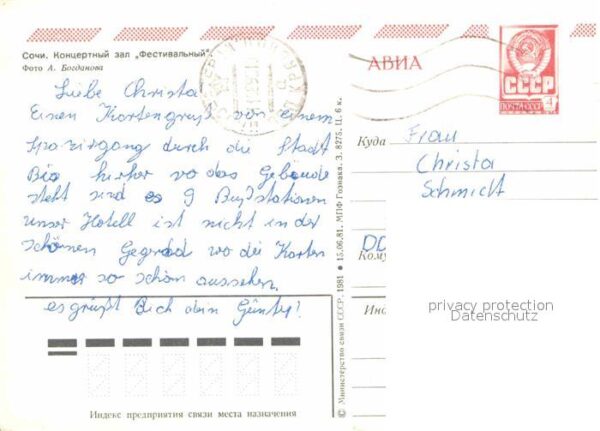 Сочи. Концертный зал „Фестивальный"
Фото А. Богданова
АВИА
СССР
ПОЧТА СССР
4
Liebe Christa
Einen Kartengruß von einem
Spaziergang durch die Stadt
Bis hierher wo das Gebäude
steht sind es 9 Busstationen
unser Hotell ist nicht in der
schönen Gegend wo die Karten
immer so schön aussehen.
es grüßt Dich dein
Куда
Frau
Christa
Schmidt
DD
Кому
privacy protection
Datenschutz
© Министерство связи СССР. 1981 • 15.06.81. МПФ Гознака. З. 8275. Ц. 6 к.
Индекс предприятия связи места назначения